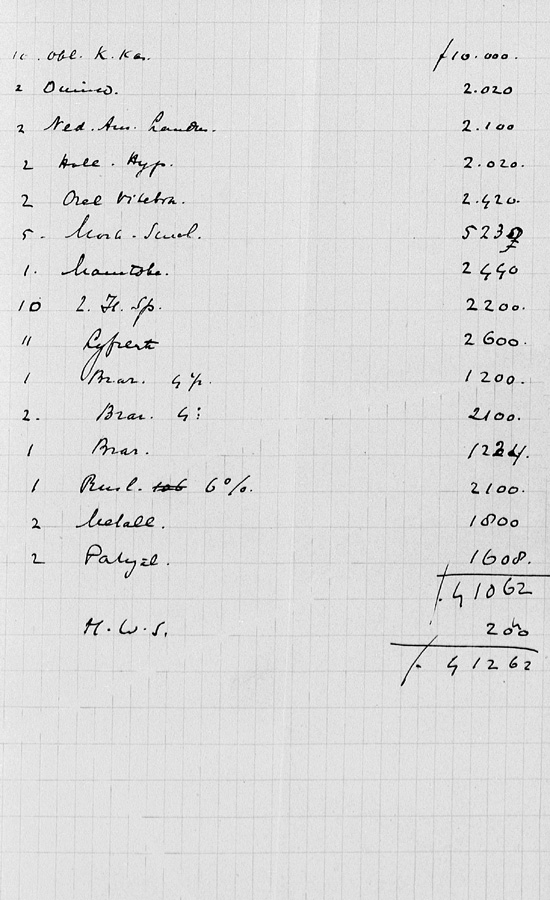 10. Obl. K. Kas. f 10.000.
2 2.020
2 Ned. Am. 2.100
2 Holl. Hyp. 2.020.
2 Orel Vitebsk. 2.420.
5. 523
1. Manitoba. 2440
10 2. H. Sp. 2200.
" 2600.
1 Braz. 4½. 1200.
2. Braz. 4: 2100.
1 Braz. 1224.
1 Rusl. 6%. 2100.
2 Metall. 1800
2 1608.
f. 41062
H.W.S. 200
f. 41262